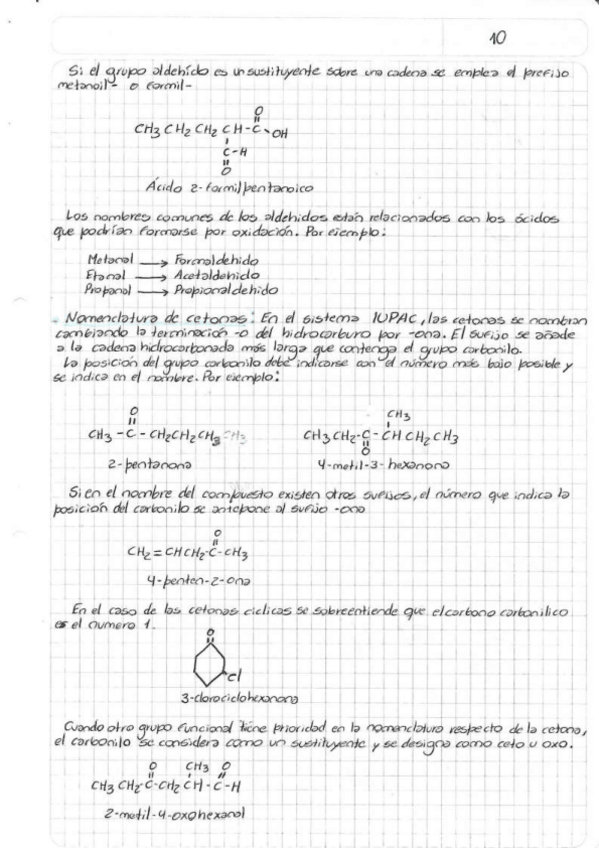 10
Si el grupo aldehído es un sustituyente sobre una cadena se emplea el prefijo
metanoil- o formil-
O
CH3 CH2 CH2 CH-C-OH
C-H
O
Ácido 2-formilpentanoico
Los nombres comunes de los aldehídos están relacionados con los ácidos
que podrían formarse por oxidación. Por ejemplo:
Metanal → Formaldehido
Etanal → Acetaldehido
Propanal → Propionaldehido
Nomenclatura de cetonas: En el sistema IUPAC, las cetonas se nombran
cambiando la terminación -o del hidrocarburo por -ona. El sufijo se añade
a la cadena hidrocarbonada más larga que contenga el grupo carbonilo.
La posición del grupo carbonilo debe indicarse con el número más bajo posible y
se indica en el nombre. Por ejemplo:
O
CH3-C-CH2CH2CH3
2-pentanona
CH3
CH3CH2-C-CHCH2CH3
O
4-metil-3-hexanona
Si en el nombre del compuesto existen otros sufijos, el número que indica la
posición del carbonilo se antepone al sufijo -ona
O
CH2=CHCH2-C-CH3
4-penten-2-ona
En el caso de las cetonas cíclicas se sobreentiende que el carbono carbonílico
es el numero 1.
O
cl
3-clorociclohexanona
Cuando otro grupo funcional tiene prioridad en la nomenclatura respecto de la cetona,
el carbonilo se considera como un sustituyente y se designa como ceto u oxo.
O CH3 O
CH3 CH2-C-CH2 CH-C-H
2-metil-4-oxohexanal